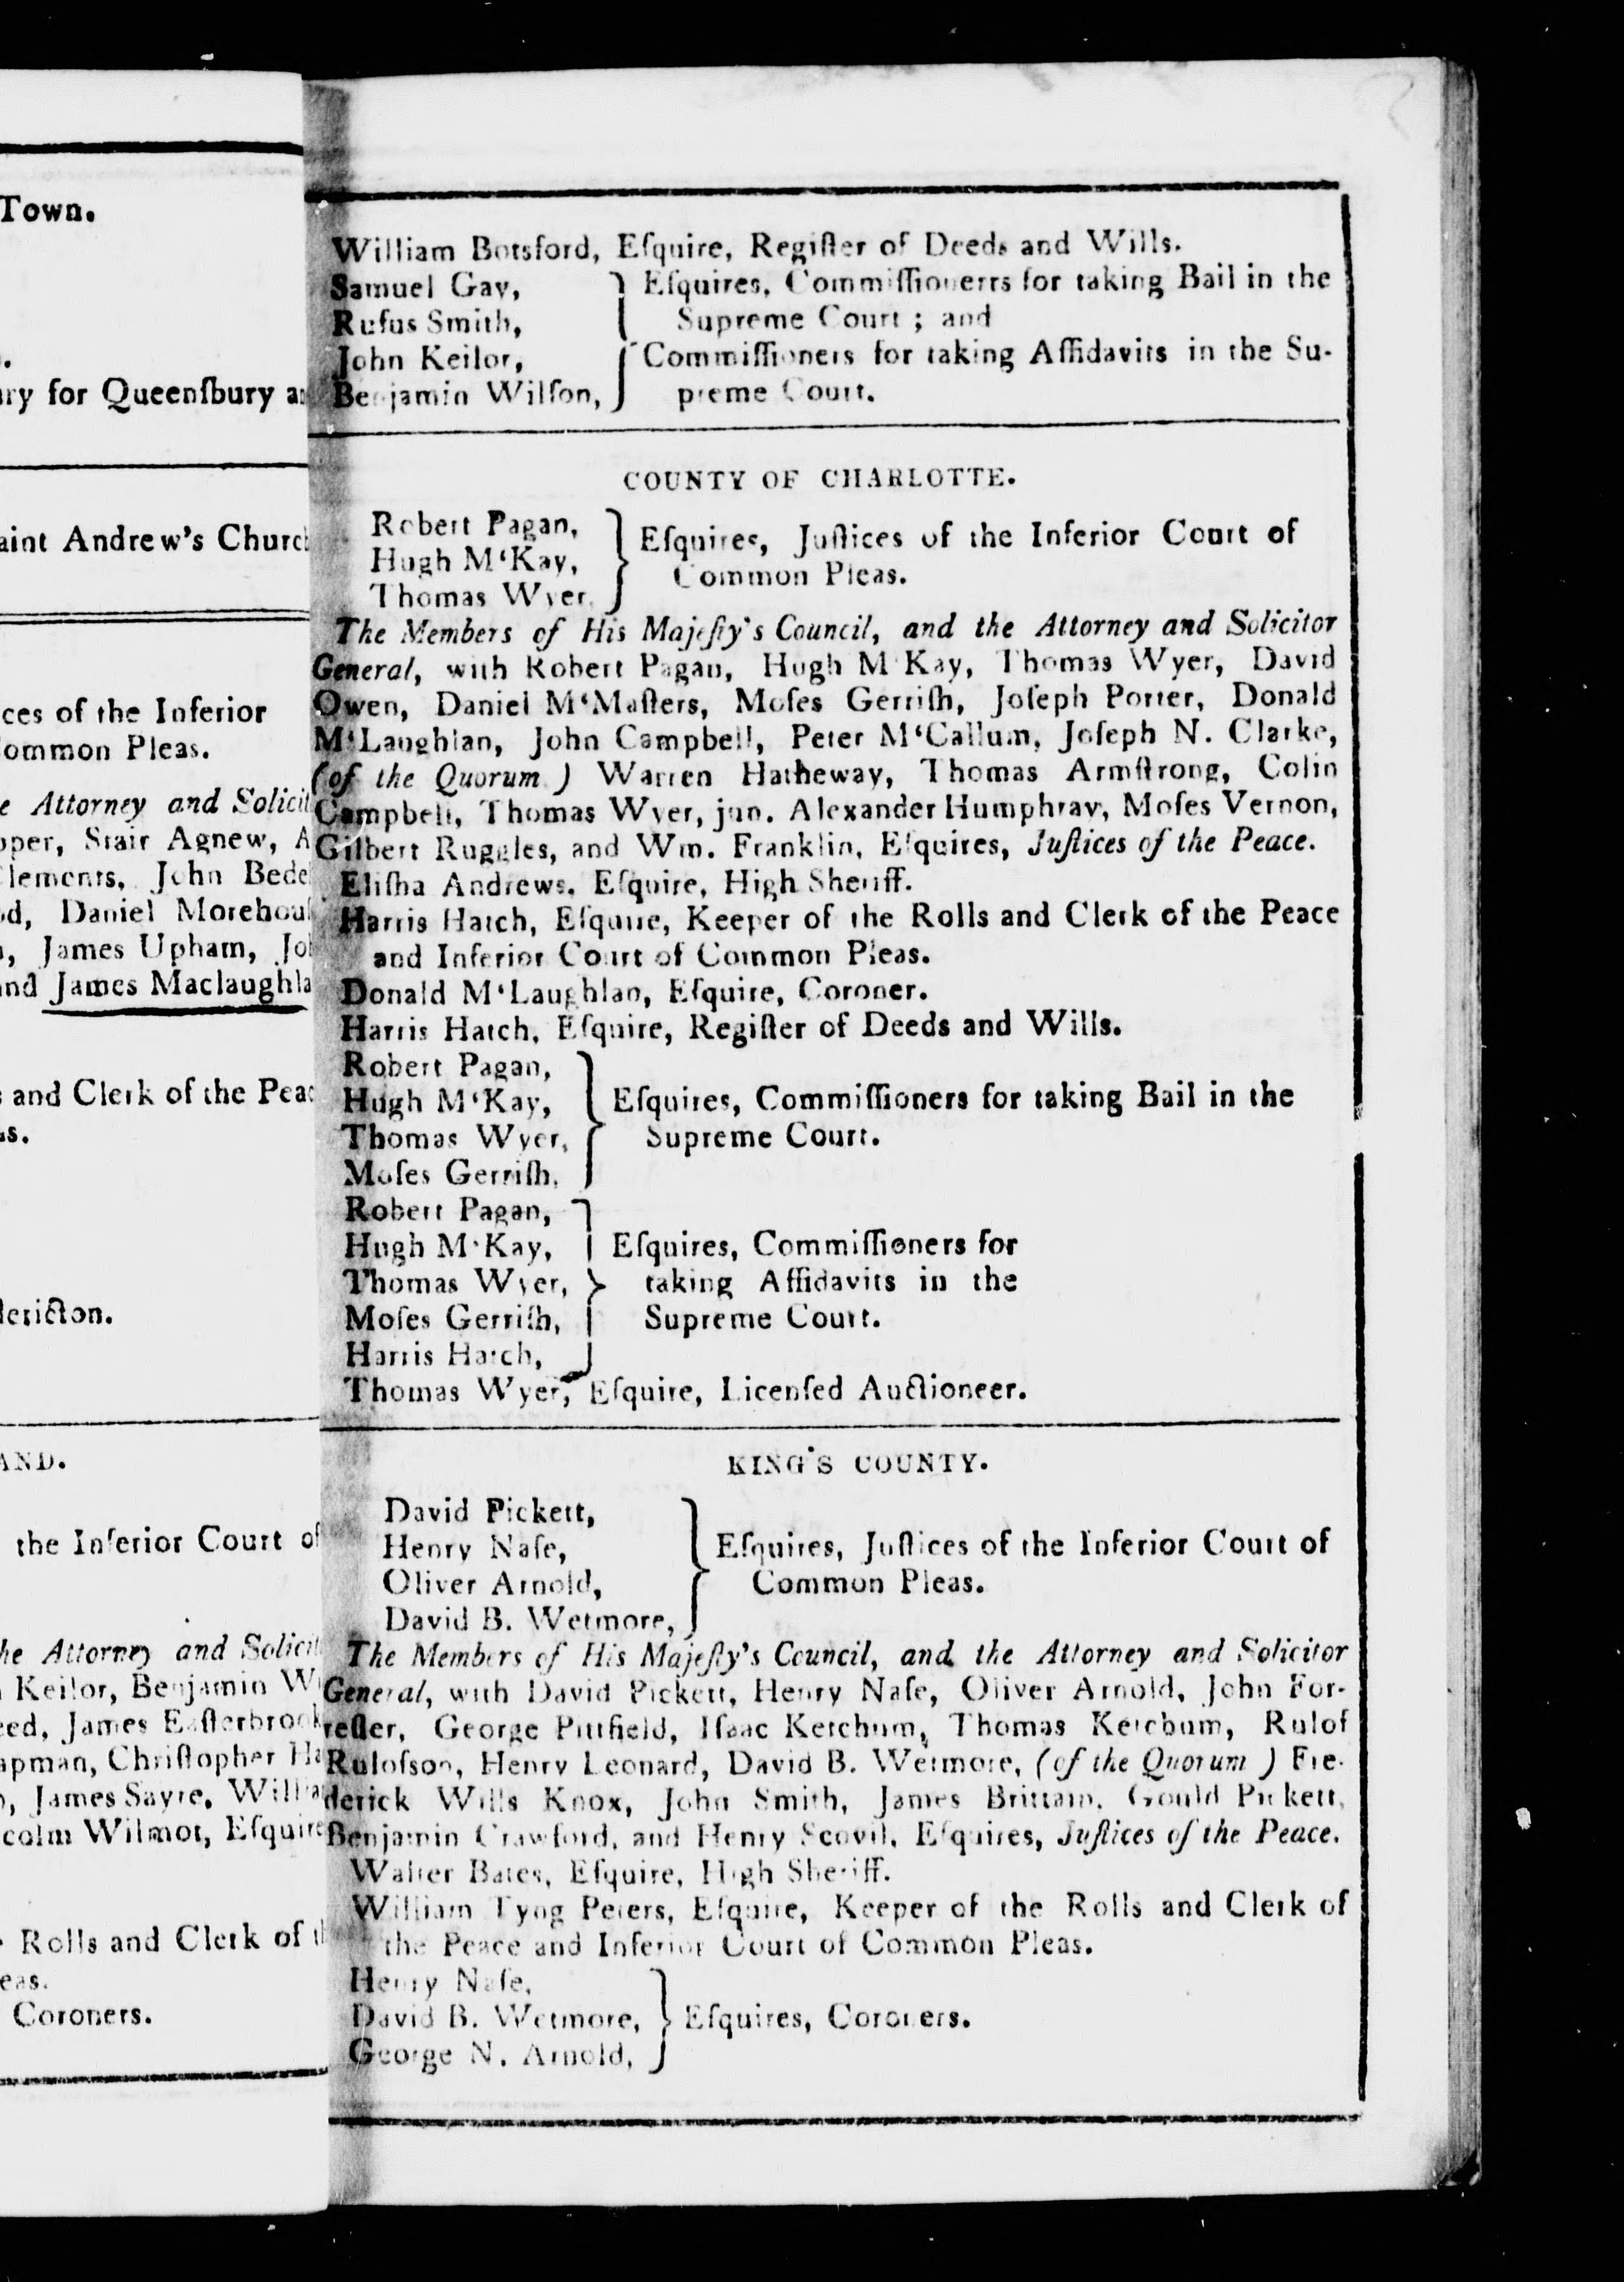 Town.
ry for Queenſbury
aint Andrew's Church
ces of the Inferior
ommon Pleas.
e Attorney and Solicit
pper, Stair Agnew, A
lements, John Bede
od, Daniel Morehouſ
, James Upham, Jo
and James Maclaughla
and Clerk of the Peac
as.
dericton.
AND.
the Inferior Court of
he Attorney and Solicit
Keilor, Benjamin W
eed, James Eaſterbrook
apman, Chriſtopher Ha
, James Sayre, Willia
colm Wilmot, Eſquire
Rolls and Clerk of th
eas.
Coroners.
William Botsford, Eſquire, Regiſter of Deeds and Wills.
Samuel Gay, } Eſquires, Commiſſionerrs for taking Bail in the
Rufus Smith, Supreme Court ; and
John Keilor, Commiſſioners for taking Affidavits in the Su-
Benjamin Wilſon, preme Court.
COUNTY OF CHARLOTTE.
Robert Pagan,
Hugh M'Kay, } Eſquires, Juſtices of the Inferior Court of
Thomas Wyer, Common Pleas.
The Members of His Majeſty's Council, and the Attorney and Solicitor
General, with Robert Pagan, Hugh M'Kay, Thomas Wyer, David
Owen, Daniel M'Maſters, Moſes Gerriſh, Joſeph Porter, Donald
M'Laughlan, John Campbell, Peter M'Callum, Joſeph N. Clarke,
(of the Quorum) Warren Hatheway, Thomas Armſtrong, Colin
Campbell, Thomas Wyer, jun. Alexander Humphray, Moſes Vernon,
Gilbert Ruggles, and Wm. Franklin, Eſquires, Juſtices of the Peace.
Eliſha Andrews, Eſquire, High Sheriff.
Harris Hatch, Eſquire, Keeper of the Rolls and Clerk of the Peace
and Inferior Court of Common Pleas.
Donald M'Laughlan, Eſquire, Coroner.
Harris Hatch, Eſquire, Regiſter of Deeds and Wills.
Robert Pagan,
Hugh M'Kay, } Eſquires, Commiſſioners for taking Bail in the
Thomas Wyer, Supreme Court.
Moſes Gerriſh,
Robert Pagan,
Hugh M'Kay, Eſquires, Commiſſioners for
Thomas Wyer, } taking Affidavits in the
Moſes Gerriſh, Supreme Court.
Harris Hatch,
Thomas Wyer, Eſquire, Licenſed Auctioneer.
KING'S COUNTY.
David Pickett,
Henry Naſe, } Eſquires, Juſtices of the Inferior Court of
Oliver Arnold, Common Pleas.
David B. Wetmore,
The Members of His Majeſty's Council, and the Attorney and Solicitor
General, with David Pickett, Henry Naſe, Oliver Arnold, John For-
reſter, George Pittfield, Iſaac Ketchum, Thomas Ketchum, Rulof
Rulofson, Henry Leonard, David B. Wetmore, (of the Quorum) Fre-
derick Wills Knox, John Smith, James Brittain, Gould Pickett,
Benjamin Crawford, and Henry Scovil, Eſquires, Juſtices of the Peace.
Walter Bates, Eſquire, High Sheriff.
William Tyng Peters, Eſquire, Keeper of the Rolls and Clerk of
the Peace and Inferior Court of Common Pleas.
Henry Naſe,
David B. Wetmore, } Eſquires, Coroners.
George N. Arnold,